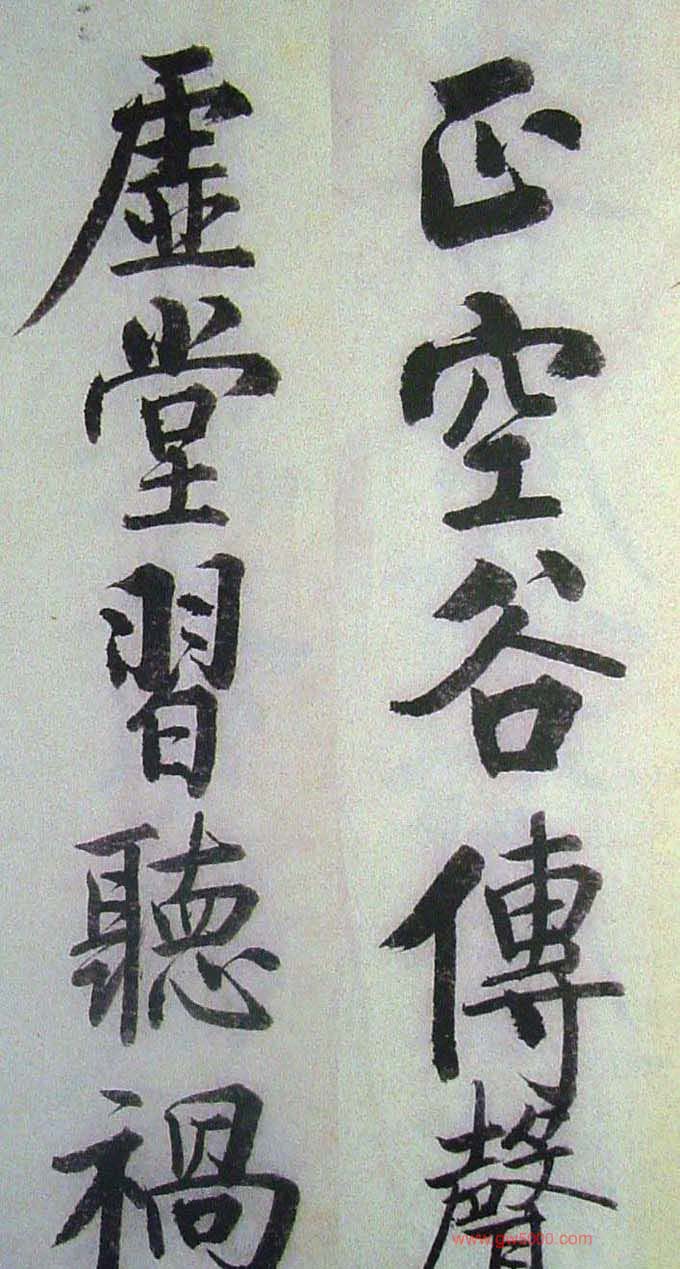 正空谷傳聲
虛堂習聽禍
www.gtw5000.com